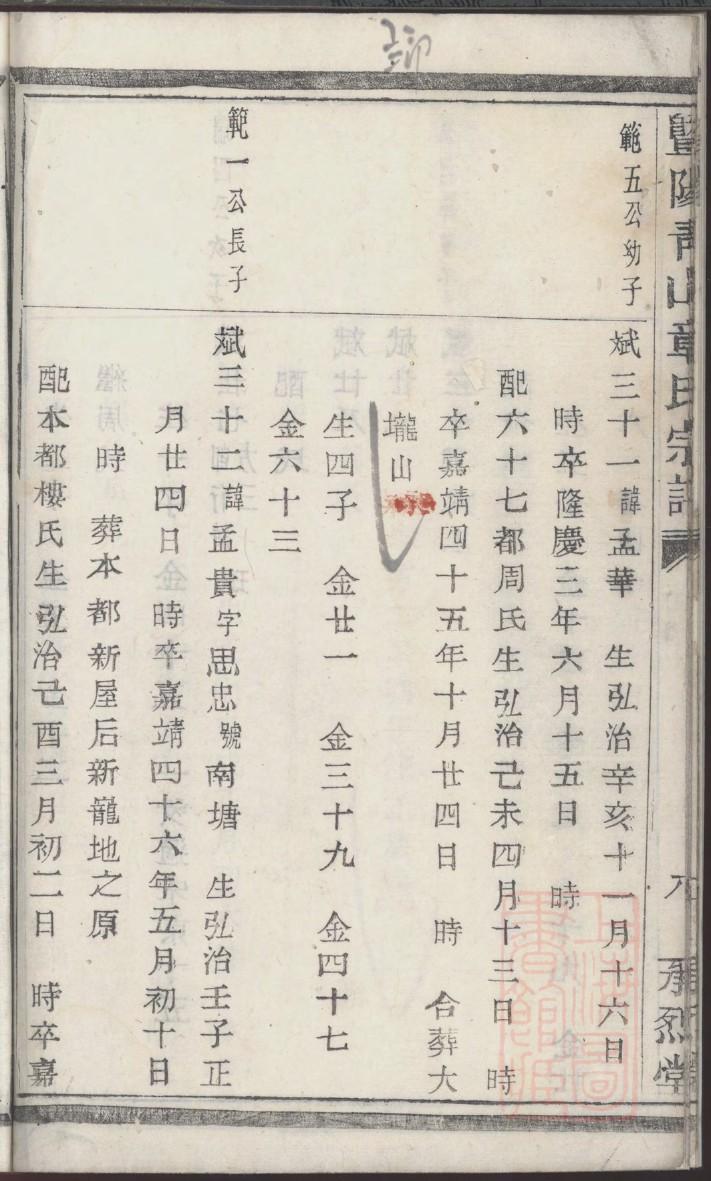 暨陽青山章氏宗譜
承烈堂
範五公幼子
斌三十一諱孟華　生弘治辛亥十一月十六日
時卒隆慶三年六月十五日　時
配六十七都周氏生弘治己未四月十三日　時
卒嘉靖四十五年十月廿四日　時　合葬大
壠山
生四子　金廿一　金三十九　金四十七
金六十三
範一公長子
斌三十二諱孟貴字思忠號南塘　生弘治壬子正
月廿四日　時卒嘉靖四十六年五月初十日
時　葬本都新屋后新龍地之原
配本都樓氏生弘治己酉三月初二日　時卒嘉